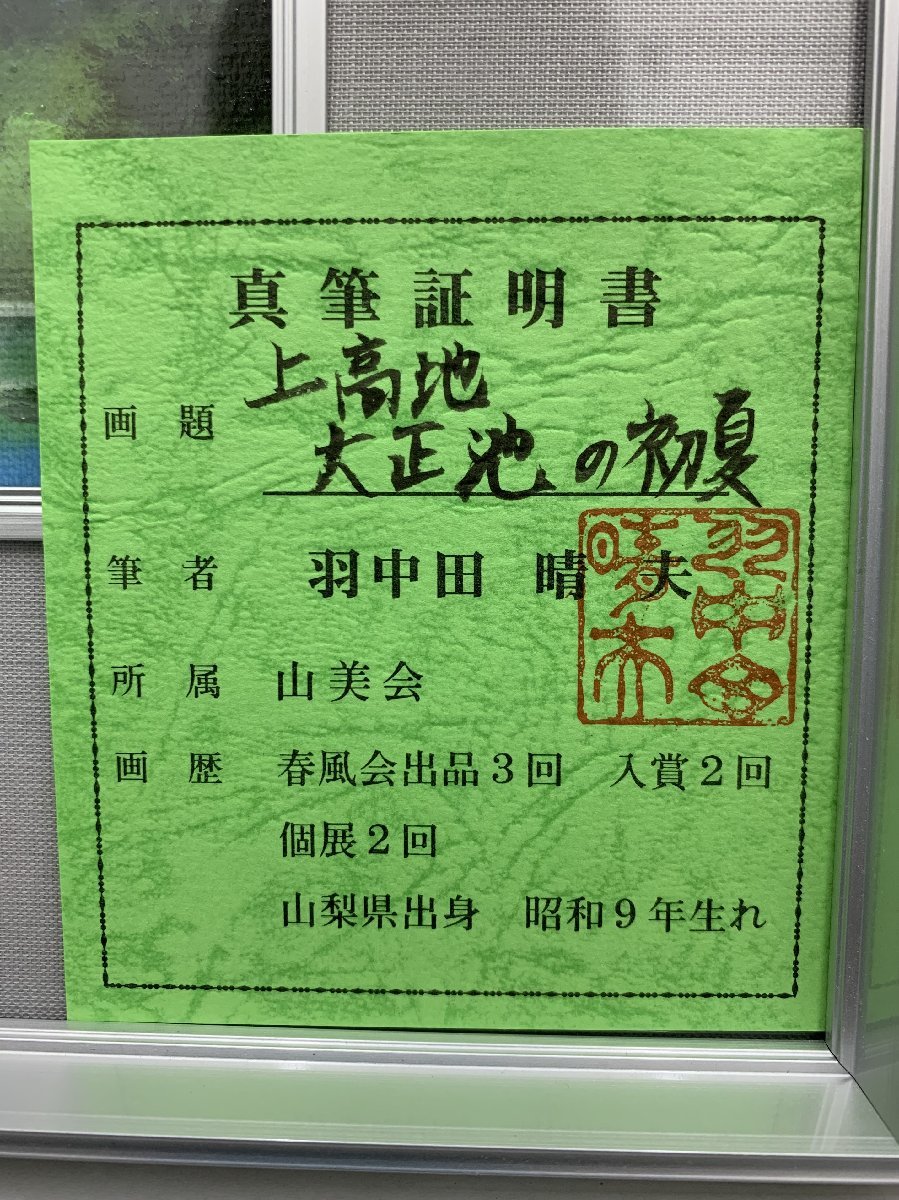 真筆証明書
画題 上高地
大正池の初夏
筆者 羽中田 晴夫
所属 山美会
画歴 春風会出品3回 入賞2回
個展2回
山梨県出身 昭和9年生れ
羽中田
晴夫